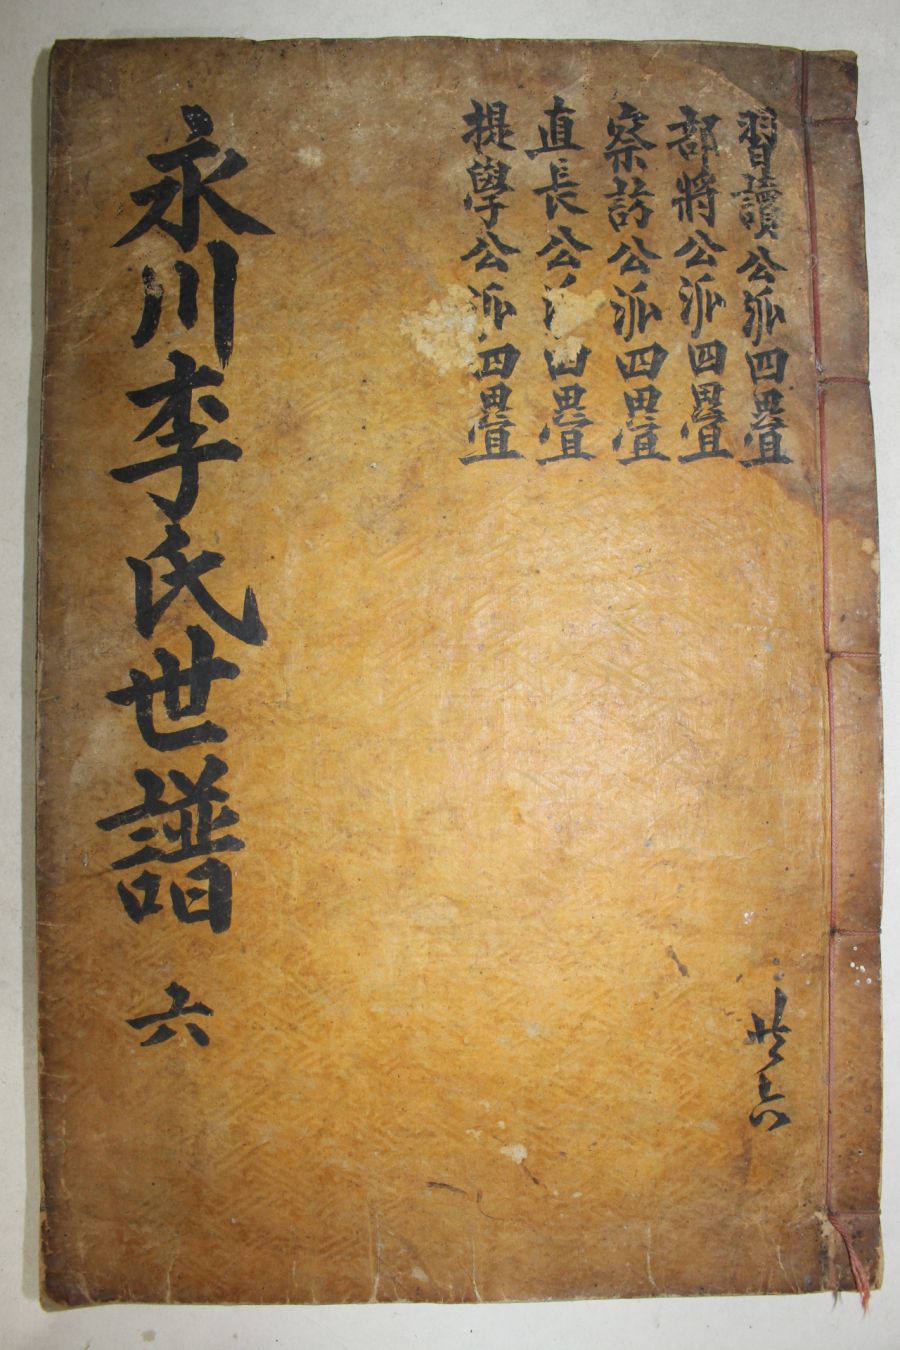 習讀公派四疊
部將公派四疊
察訪公派四疊
直長公派四疊
提學公派四疊
永川李氏世譜 六
共六